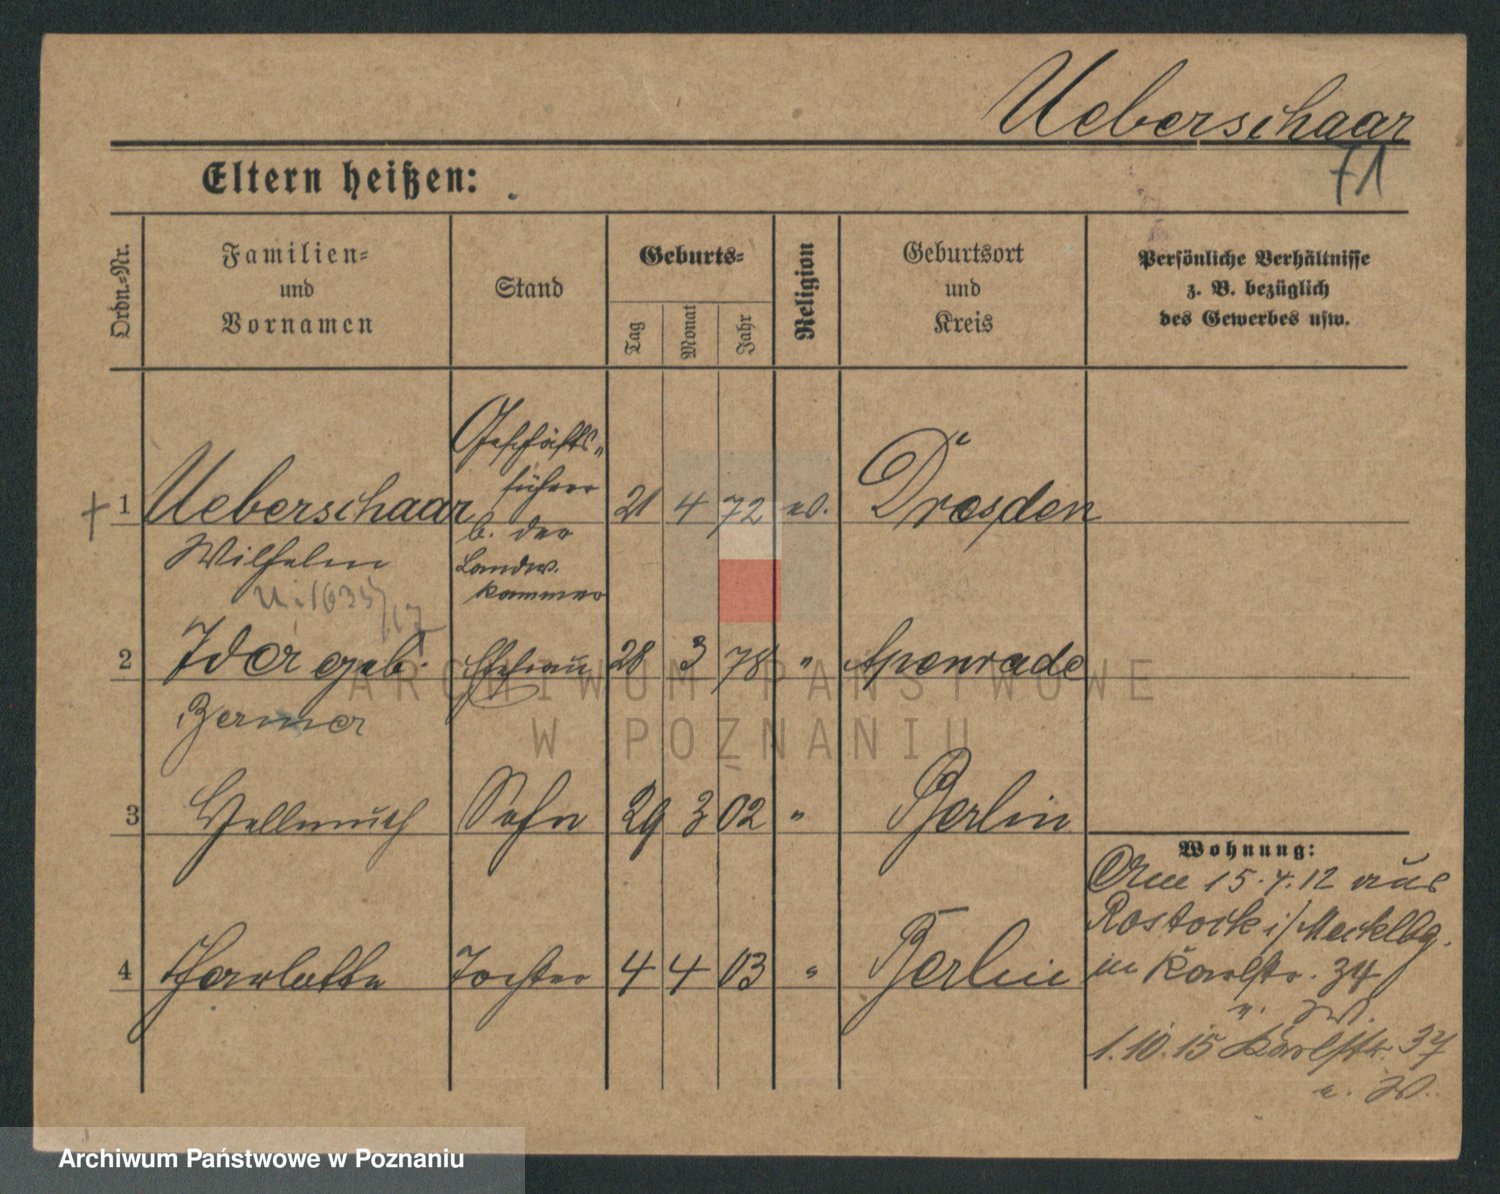 Ueberschaar
71
Eltern heißen:
Ordn.-Nr.
Familien-
und
Vornamen
Stand
Geburts-
Tag
Monat
Jahr
Religion
Geburtsort
und
Kreis
Persönliche Verhältnisse
z. B. bezüglich
des Gewerbes usw.
+ 1 Ueberschaar Geschäfts- 21 4 72 ev. Dresden
führer
b. der
Wilhelm Landw.
kammer
U. 1635/17
2 Ida geb. Ehefrau 28 3 78 " Apenrade
ARCHIWUM PAŃSTWOWE
W POZNANIU
3 Hellmuth Sohn 29 3 02 " Berlin
Wohnung:
Am 15.7.12 aus
Rostock i/Mecklbg.
4 Charlotte Tochter 4 4 03 " Berlin
in Karlstr. 34
1.10.15 Karlstr. 37
Archiwum Państwowe w Poznaniu